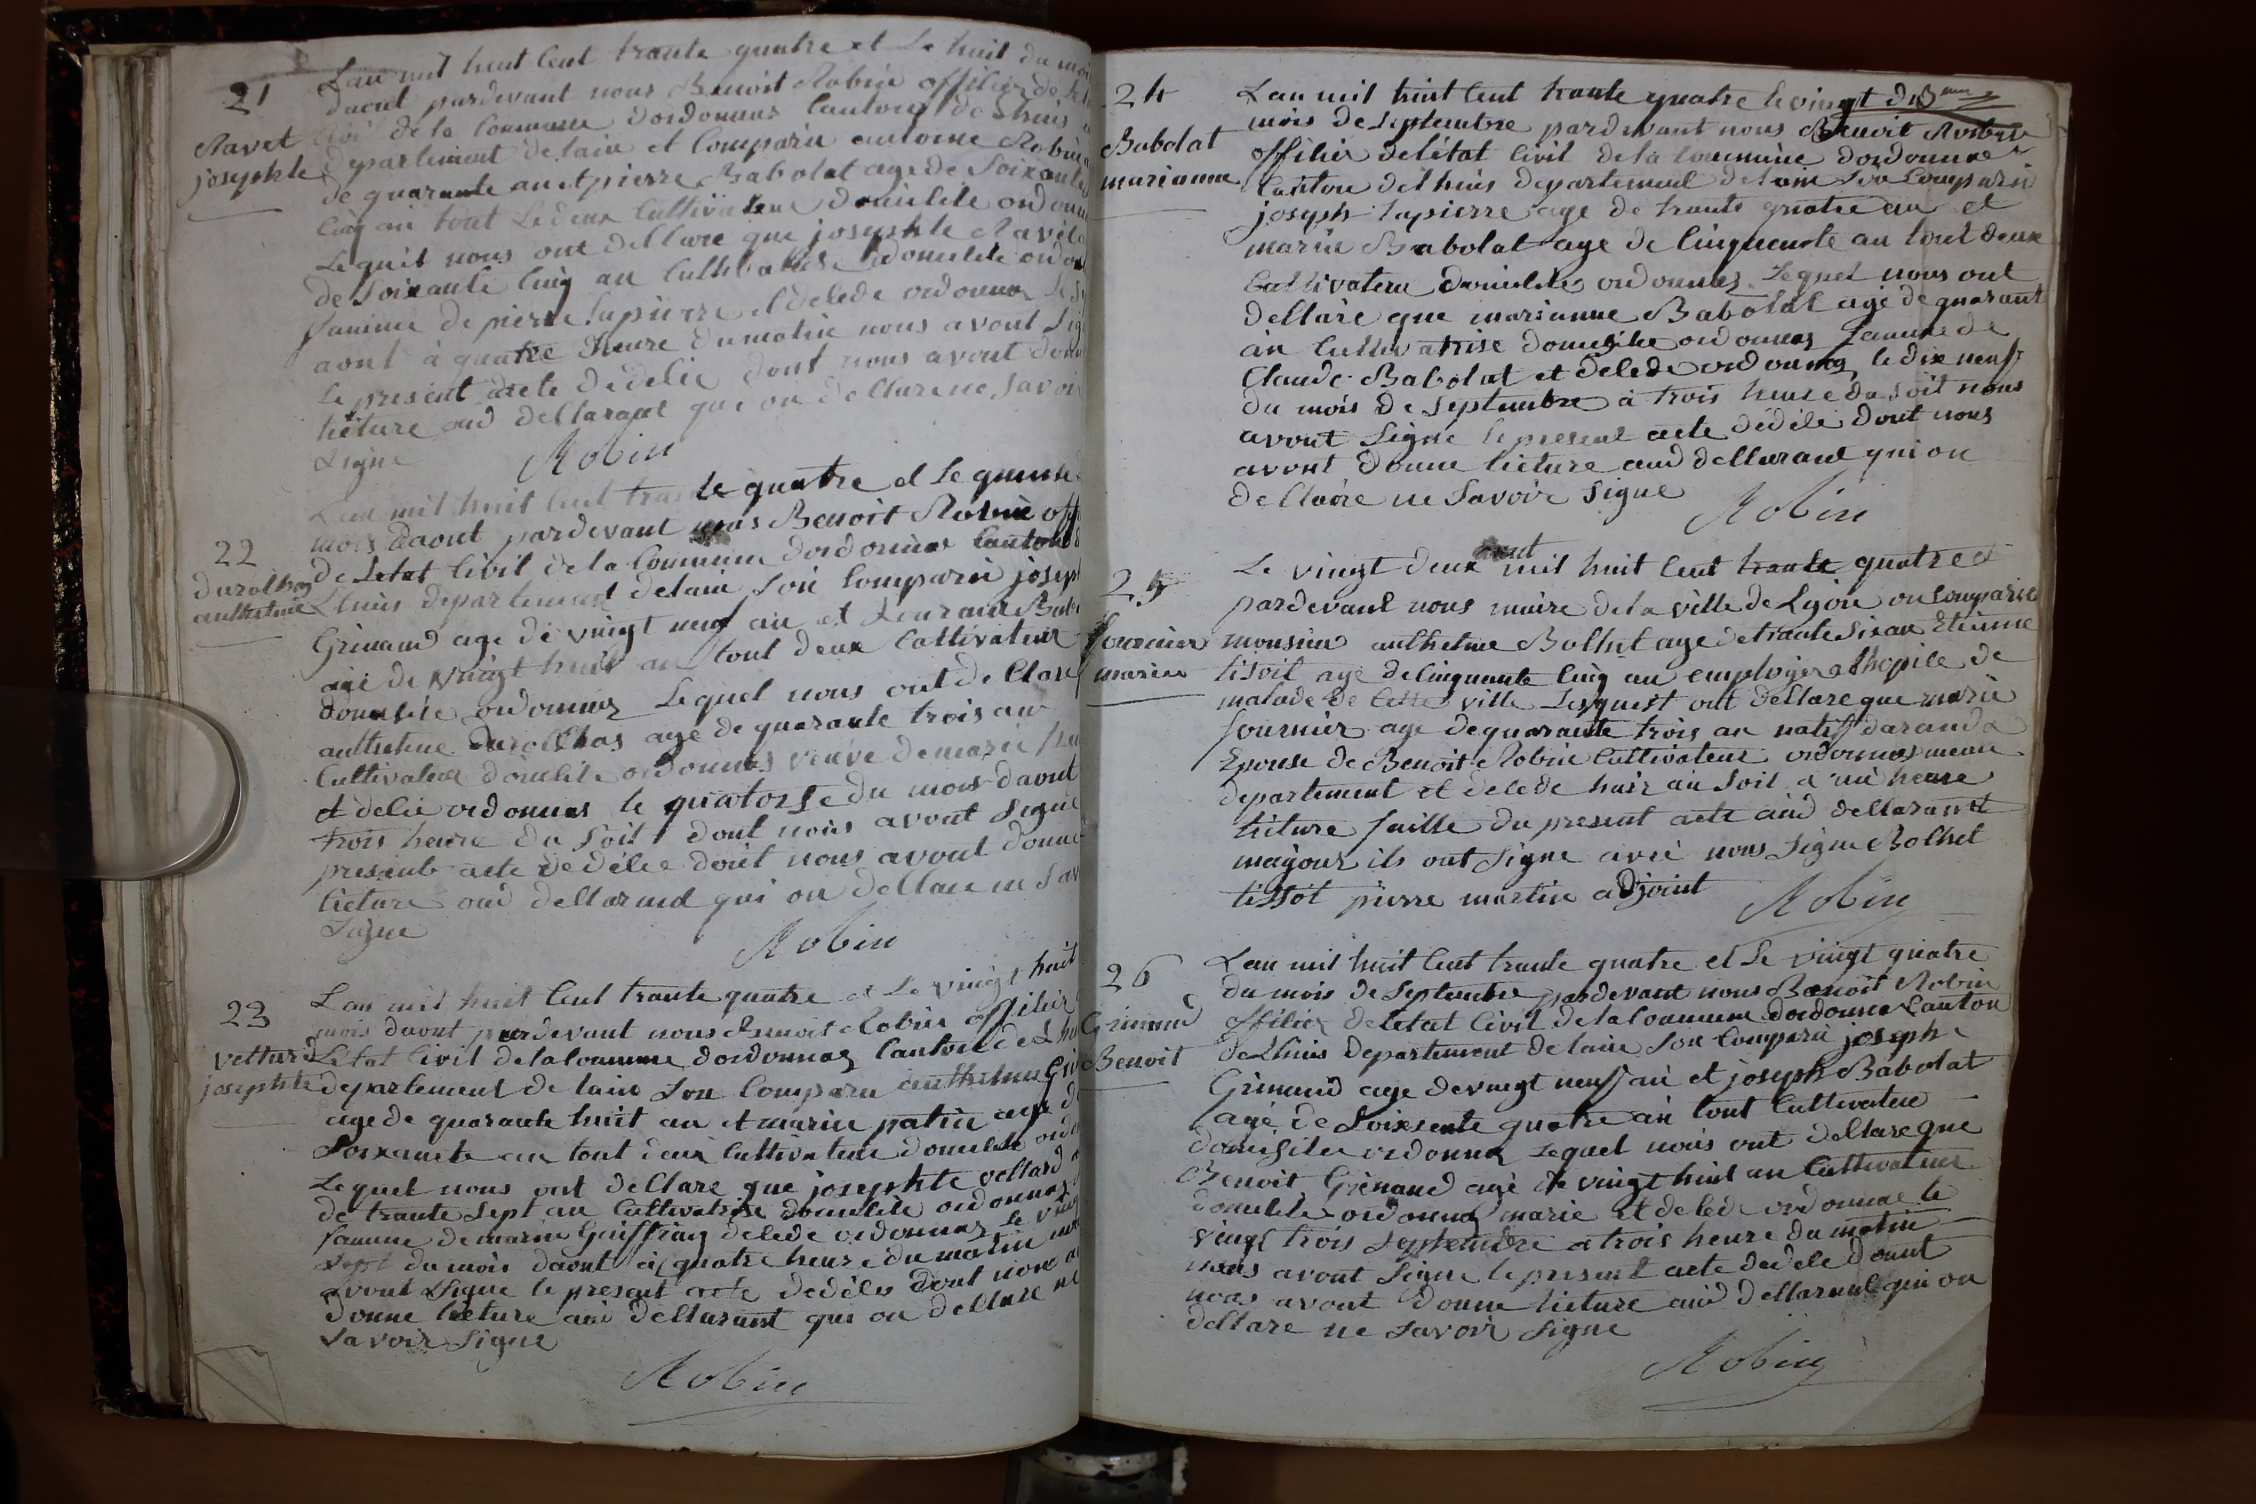 21
Ravet
josephte
Lan mil huit Cent trante quatre et Le huit du moi
daout pardevant nous Benoit Robin offilier de
Civil de la Commune dordonnas Canton de Lhuis
departement de lain et Comparu antoine Robin
de quarante an et pierre Babolat age de Soixante
Cinq an tout Le deux Cultivateur domicile ordonn
Lequel nous ont dellare que josephte Ravet
de Soixante Cinq an Cultivatrise domicile ordon
famme de pierre Lapierre et delede ordonnas
aout à quatre heure du matin nous avont Sig
Le present acte dedelie dont nous avont donn
licture aud dellarant qui on dellare ne Savoir
Signe
Robin
22
durolhas
anthelme
Lan mil huit Cent trante quatre et Le quinse
mois daout pardevant nous Benoit Robin off
de Letat Civil de la Commune dordonnas Canton
Lhuis departement delain Son Comparu joseph
Grimand age de vingt neuf an et
age de vingt huit an tout deux Cultivateur
domicile ordonnas Lequel nous ont de Clare
anthelme durolhas age de quarante trois an
Cultivateur domicile ordonnas veuve de marie
et delie ordonnas le quatorse du mois daout
trois heure du Soit dont nous avont Signe
present acte dedelie dont nous avont donne
licture aud dellarand qui on dellare ne Sav
Signe
Robin
23
vettard
josephte
Lan mil huit Cent trante quatre et Le vingt huit
mois daout pardevant nous Benoit Robin offilier
Letat Civil delaCommune dordonnas Canton de Lhu
departement de lain Son Comparu anthelme
age de quarante huit an et marin patin age d
Soixante an tout deux Cultivateur domicile ordo
Lequel nous ont dellare que josephte vettard
de trante Sept an Cultivatrise domicile ordonnas
famme de marin Guiffray delede ordonnas Le ving
Sept du mois daout à quatre heure du matin nous
avont Signe le present acte dedelie dont nous
donne licture aud dellarant qui on dellare ne
Savoir Signe
Robin
24
Babolat
marianne
Lan mil huit Cent trante quatre le vingt du
mois de Septembre pardevant nous Benoit Robin
offilier deletat Civil dela Commune dordonnas
Canton delhuis departement delain Son Comparu
joseph Lapierre age de trante quatre an et
marin Babolat age de Cinquante an tout deux
Cultivateur domicilie ordonnas Lequel nous ont
dellare que marianne Babolat age de quarant
an Cultivatrise domicilie ordonnas famme de
Claude Babolat et delede ordonnas le dix neuf
du mois de Septembre à trois heure du Soit nous
avont Signe le present acte dedelie dont nous
avont donne licture aud dellarant qui on
dellare ne Savoir Signe
Robin
25
fournier
marie
aout
Le vingt deux mil huit Cent trante quatre et
pardevant nous maire dela ville de Lyon on Comparu
monsieur anthelme Bolhet age de trante Six an Etienne
tisoit age de Cinquante Cinq an employer a lhopile de
malade de Cette ville Lesquest ont dellare que marie
fournier age dequarante trois an natif darand
Epouse de Benoit Robin Cultivateur ordonnas meme
departement et delede hair au Soil a une heure
licture faitte du present acte aud dellarant
majour ils ont Signe avec nous Signe Bolhet
tissot pierre martin adjoint
Robin
26
Grimand
Benoit
Lan mil huit Cent trante quatre et Le vingt quatre
du mois de Septembre pardevant nous Benoit Robin
offilier deletat Civil delaCommune dordonnas Canton
deLhuis departement delain Son Comparu joseph
Grimand age devingt neuf an et joseph Babolat
age de Soixsente quatre an tout Cultivateur
domicilie ordonnas Lequel nous ont dellare que
Benoit Grimand age de vingt huit an Cultivateur
domicile ordonnas marie et delede ordonnas le
vingt trois Septembre a trois heure du matin
nous avont Signe le present acte dedele dont
nous avont donne licture aud dellarant qui on
dellare ne Savoir Signe
Robin